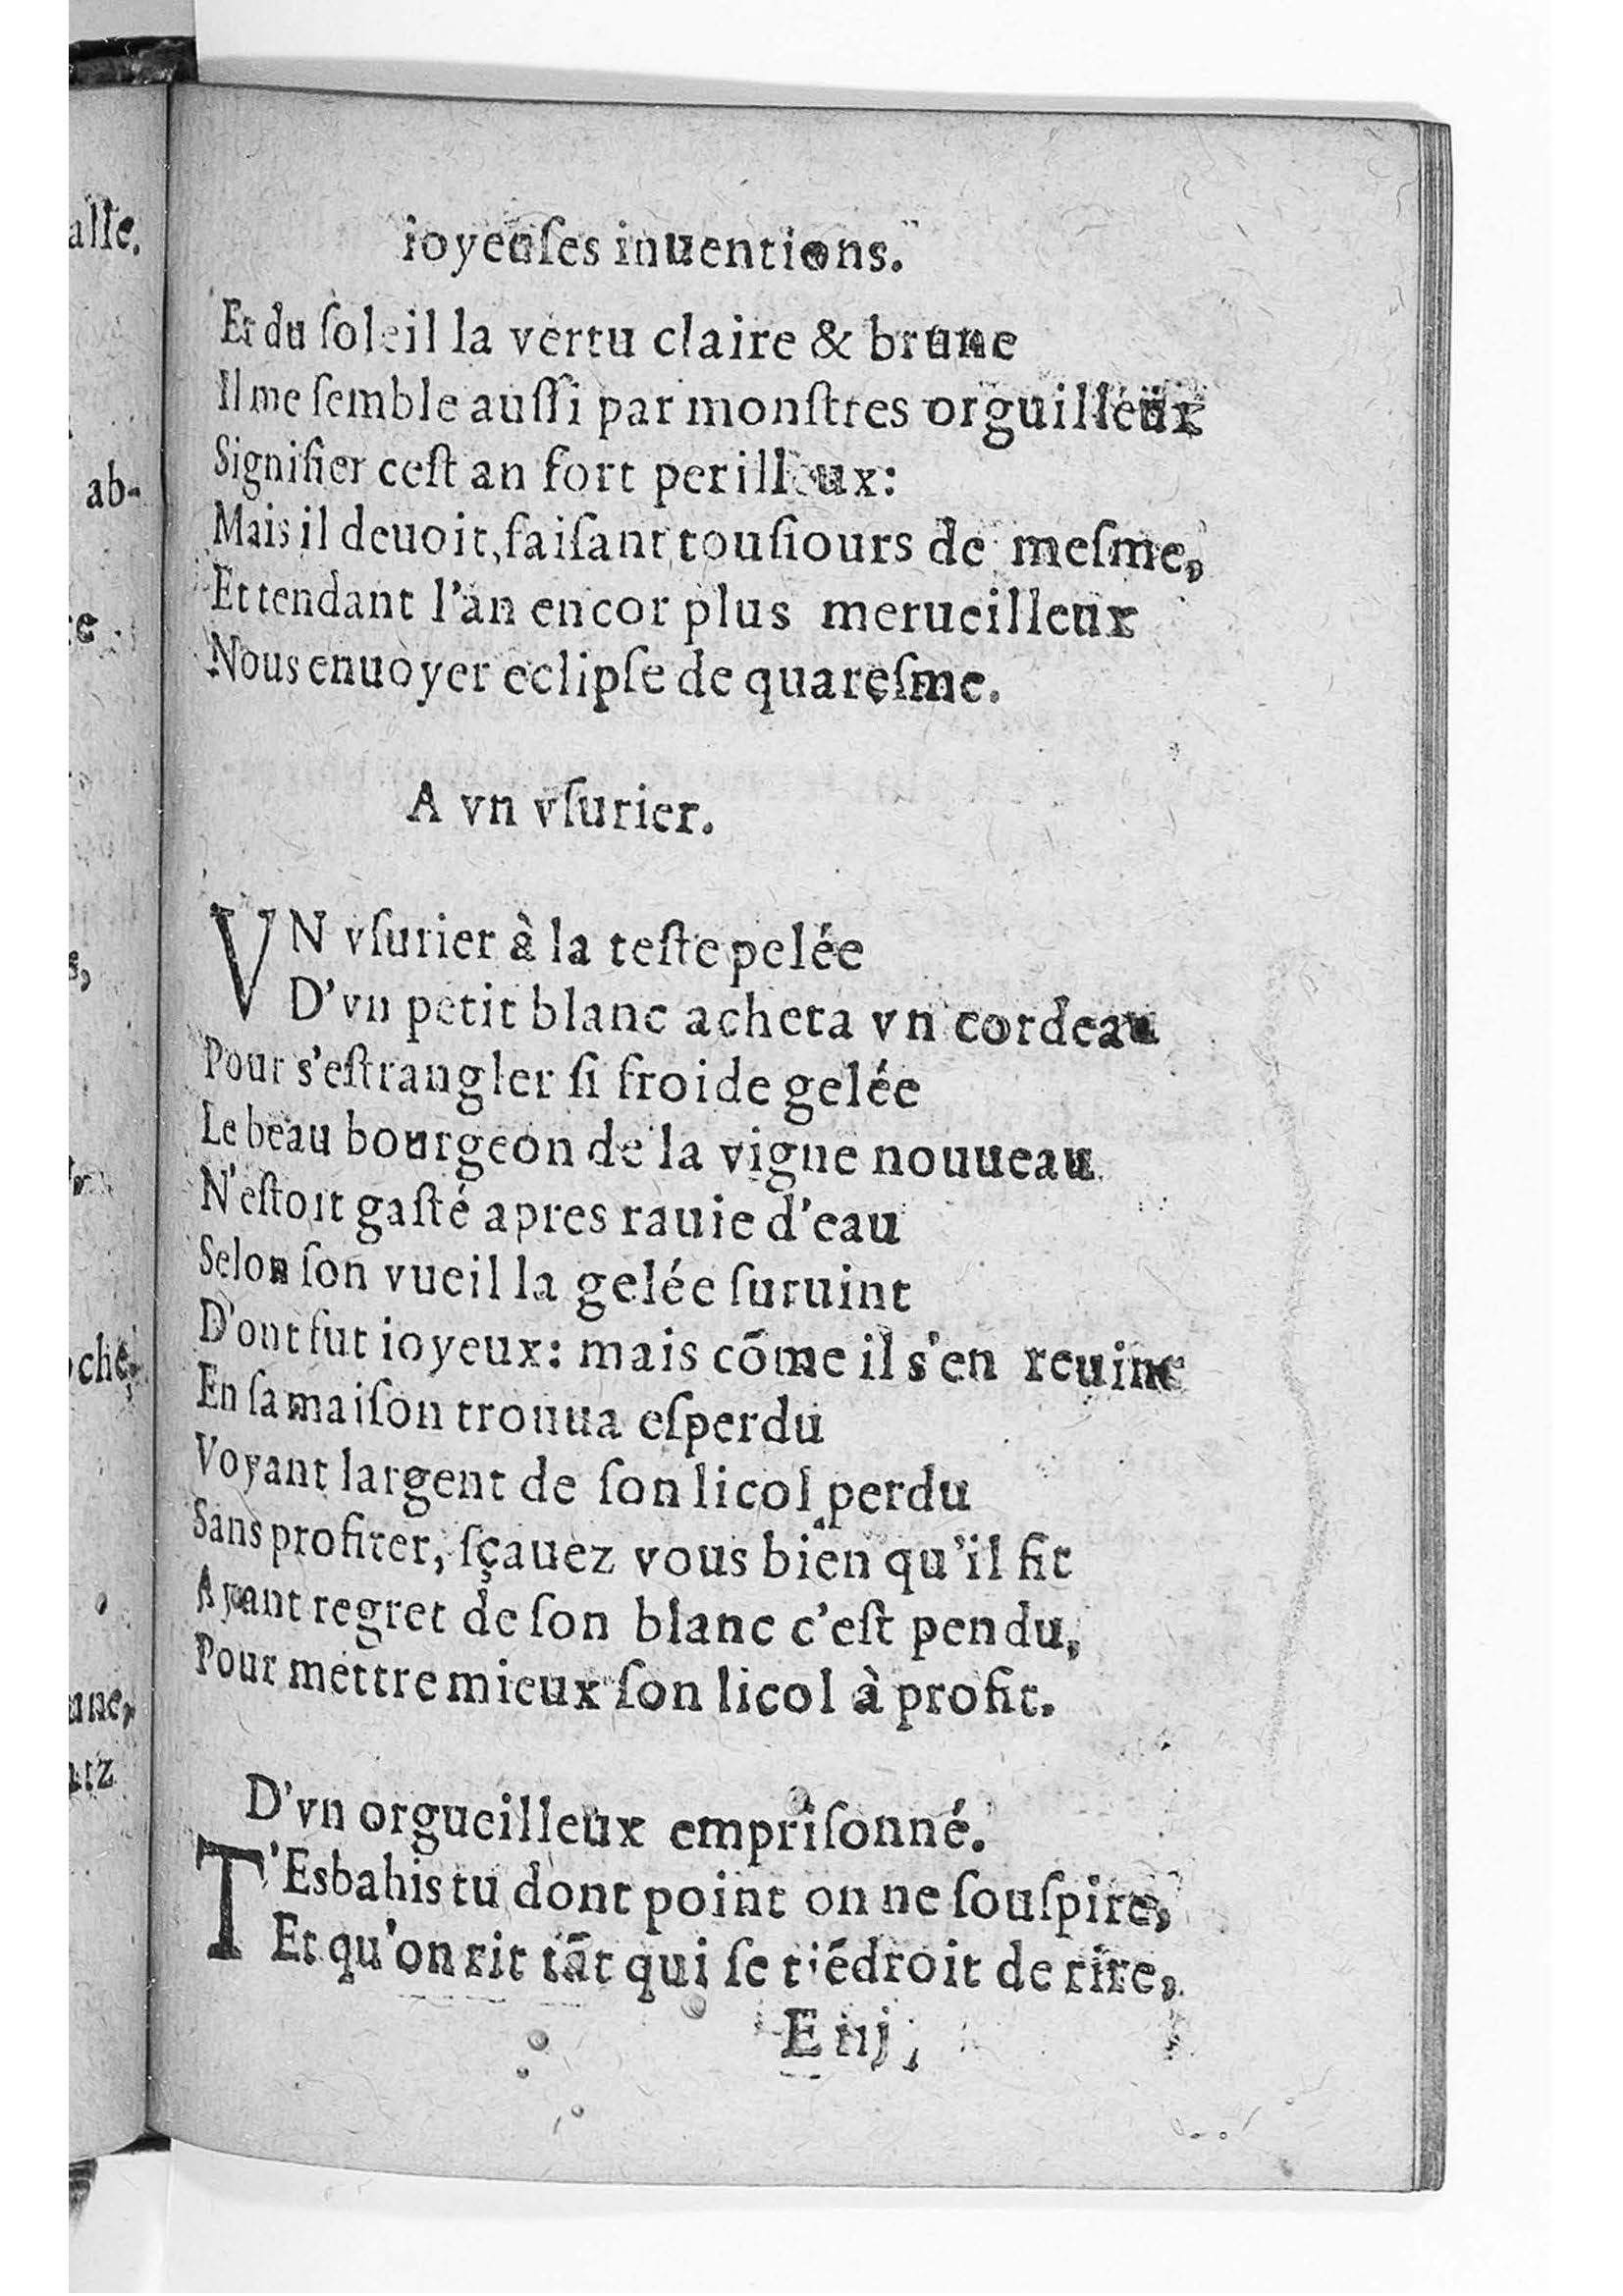 ioyeuſes inuentions.
Et du ſoleil la vertu claire & brune
Il me ſemble auſſi par monſtres orguilleux
Signifier ceſt an fort perilleux:
Mais il deuoit, faiſant touſiours de meſme,
Et tendant l'an encor plus merueilleux
Nous enuoyer eclipſe de quareſme.
A vn vſurier.
VN vſurier à la teſte pelée
D'vn petit blanc acheta vn cordeau
Pour s'eſtrangler ſi froide gelée
Le beau bourgeon de la vigne nouueau
N'eſtoit gaſté apres rauie d'eau
Selon ſon vueil la gelée ſuruint
D'ont fut ioyeux: mais cõme il s'en reuint
En ſa maiſon trouua eſperdu
Voyant largent de ſon licol perdu
Sans profiter, ſçauez vous bien qu'il fit
Ayant regret de ſon blanc c'eſt pendu,
Pour mettre mieux ſon licol à profit.
D'vn orgueilleux empriſonné.
T'Esbahis tu dont point on ne ſouſpire,
Et qu'on rit tãt qui ſe tiẽdroit de rire,
E iij
alle.
ab-
s,
oche,
une,
ntz